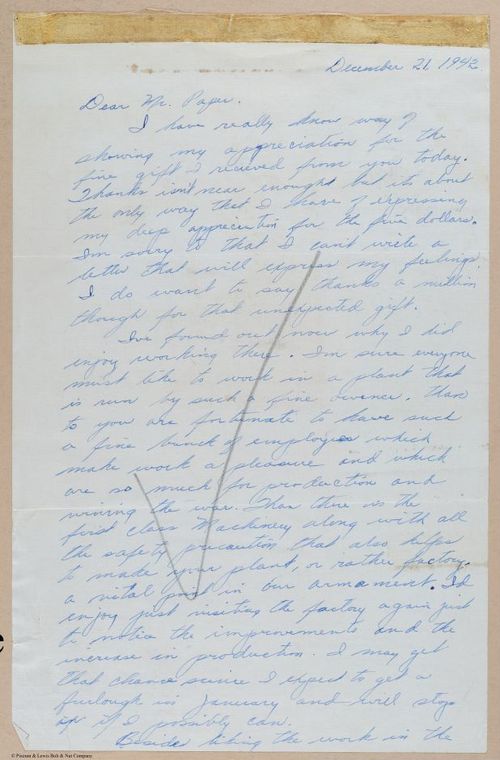 December 21, 1942
Dear Mr. Paper.
I have really know way of
showing my appreciation for the
fine gift I recieved from you today.
Thanks isn't near enought but its about
the only way that I have of expressing
my deep appreciation for the five dollars.
I'm sorry to that I can't write a
letter that will express my feelings.
I do want to say thanks a million
though for that unexpected gift.
I've found out now why I did
enjoy working there. I'm sure everyone
must like to work in a plant that
is run by such a fine owner. Than
to you are fortunate to have such
a fine bunch of employees which
make work a pleasure and which
are so much for production and
winning the war. Than there is the
first class Machinery along with all
the safety precaution that also helps
to make your plant, or rather factory.
a vital part in our armament. I'd
enjoy just visiting the factory again just
to notice the improvements and the
increase in production. I may get
that chance since I expect to get a
furlough in January and will stop
up if I possibly can.
Besides liking the work in the
© Pheoll & Lewis Bolt & Nut Company